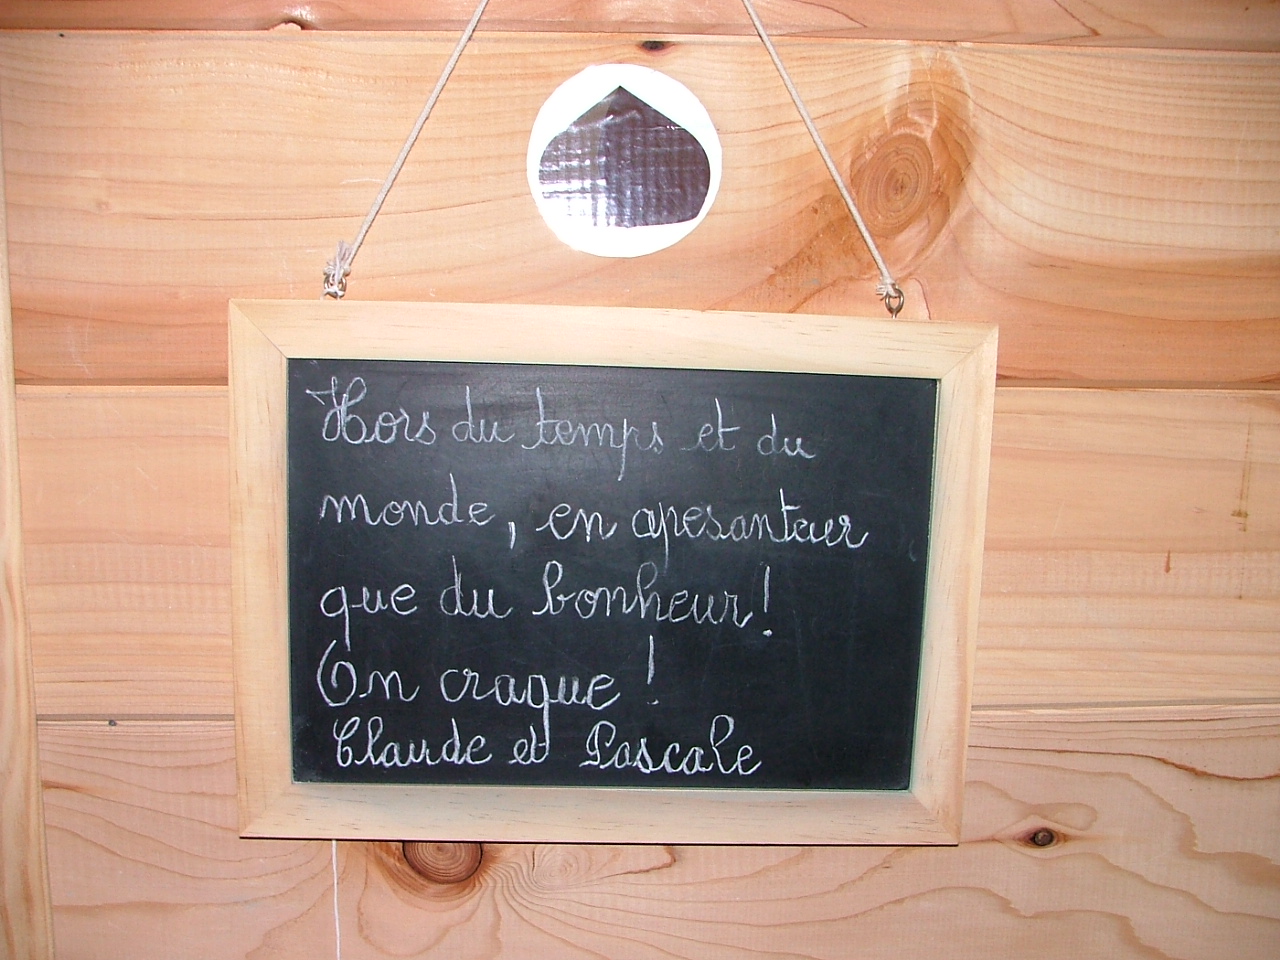 Hors du temps et du
monde, en apesanteur
que du bonheur !
On craque !
Claude et Pascale